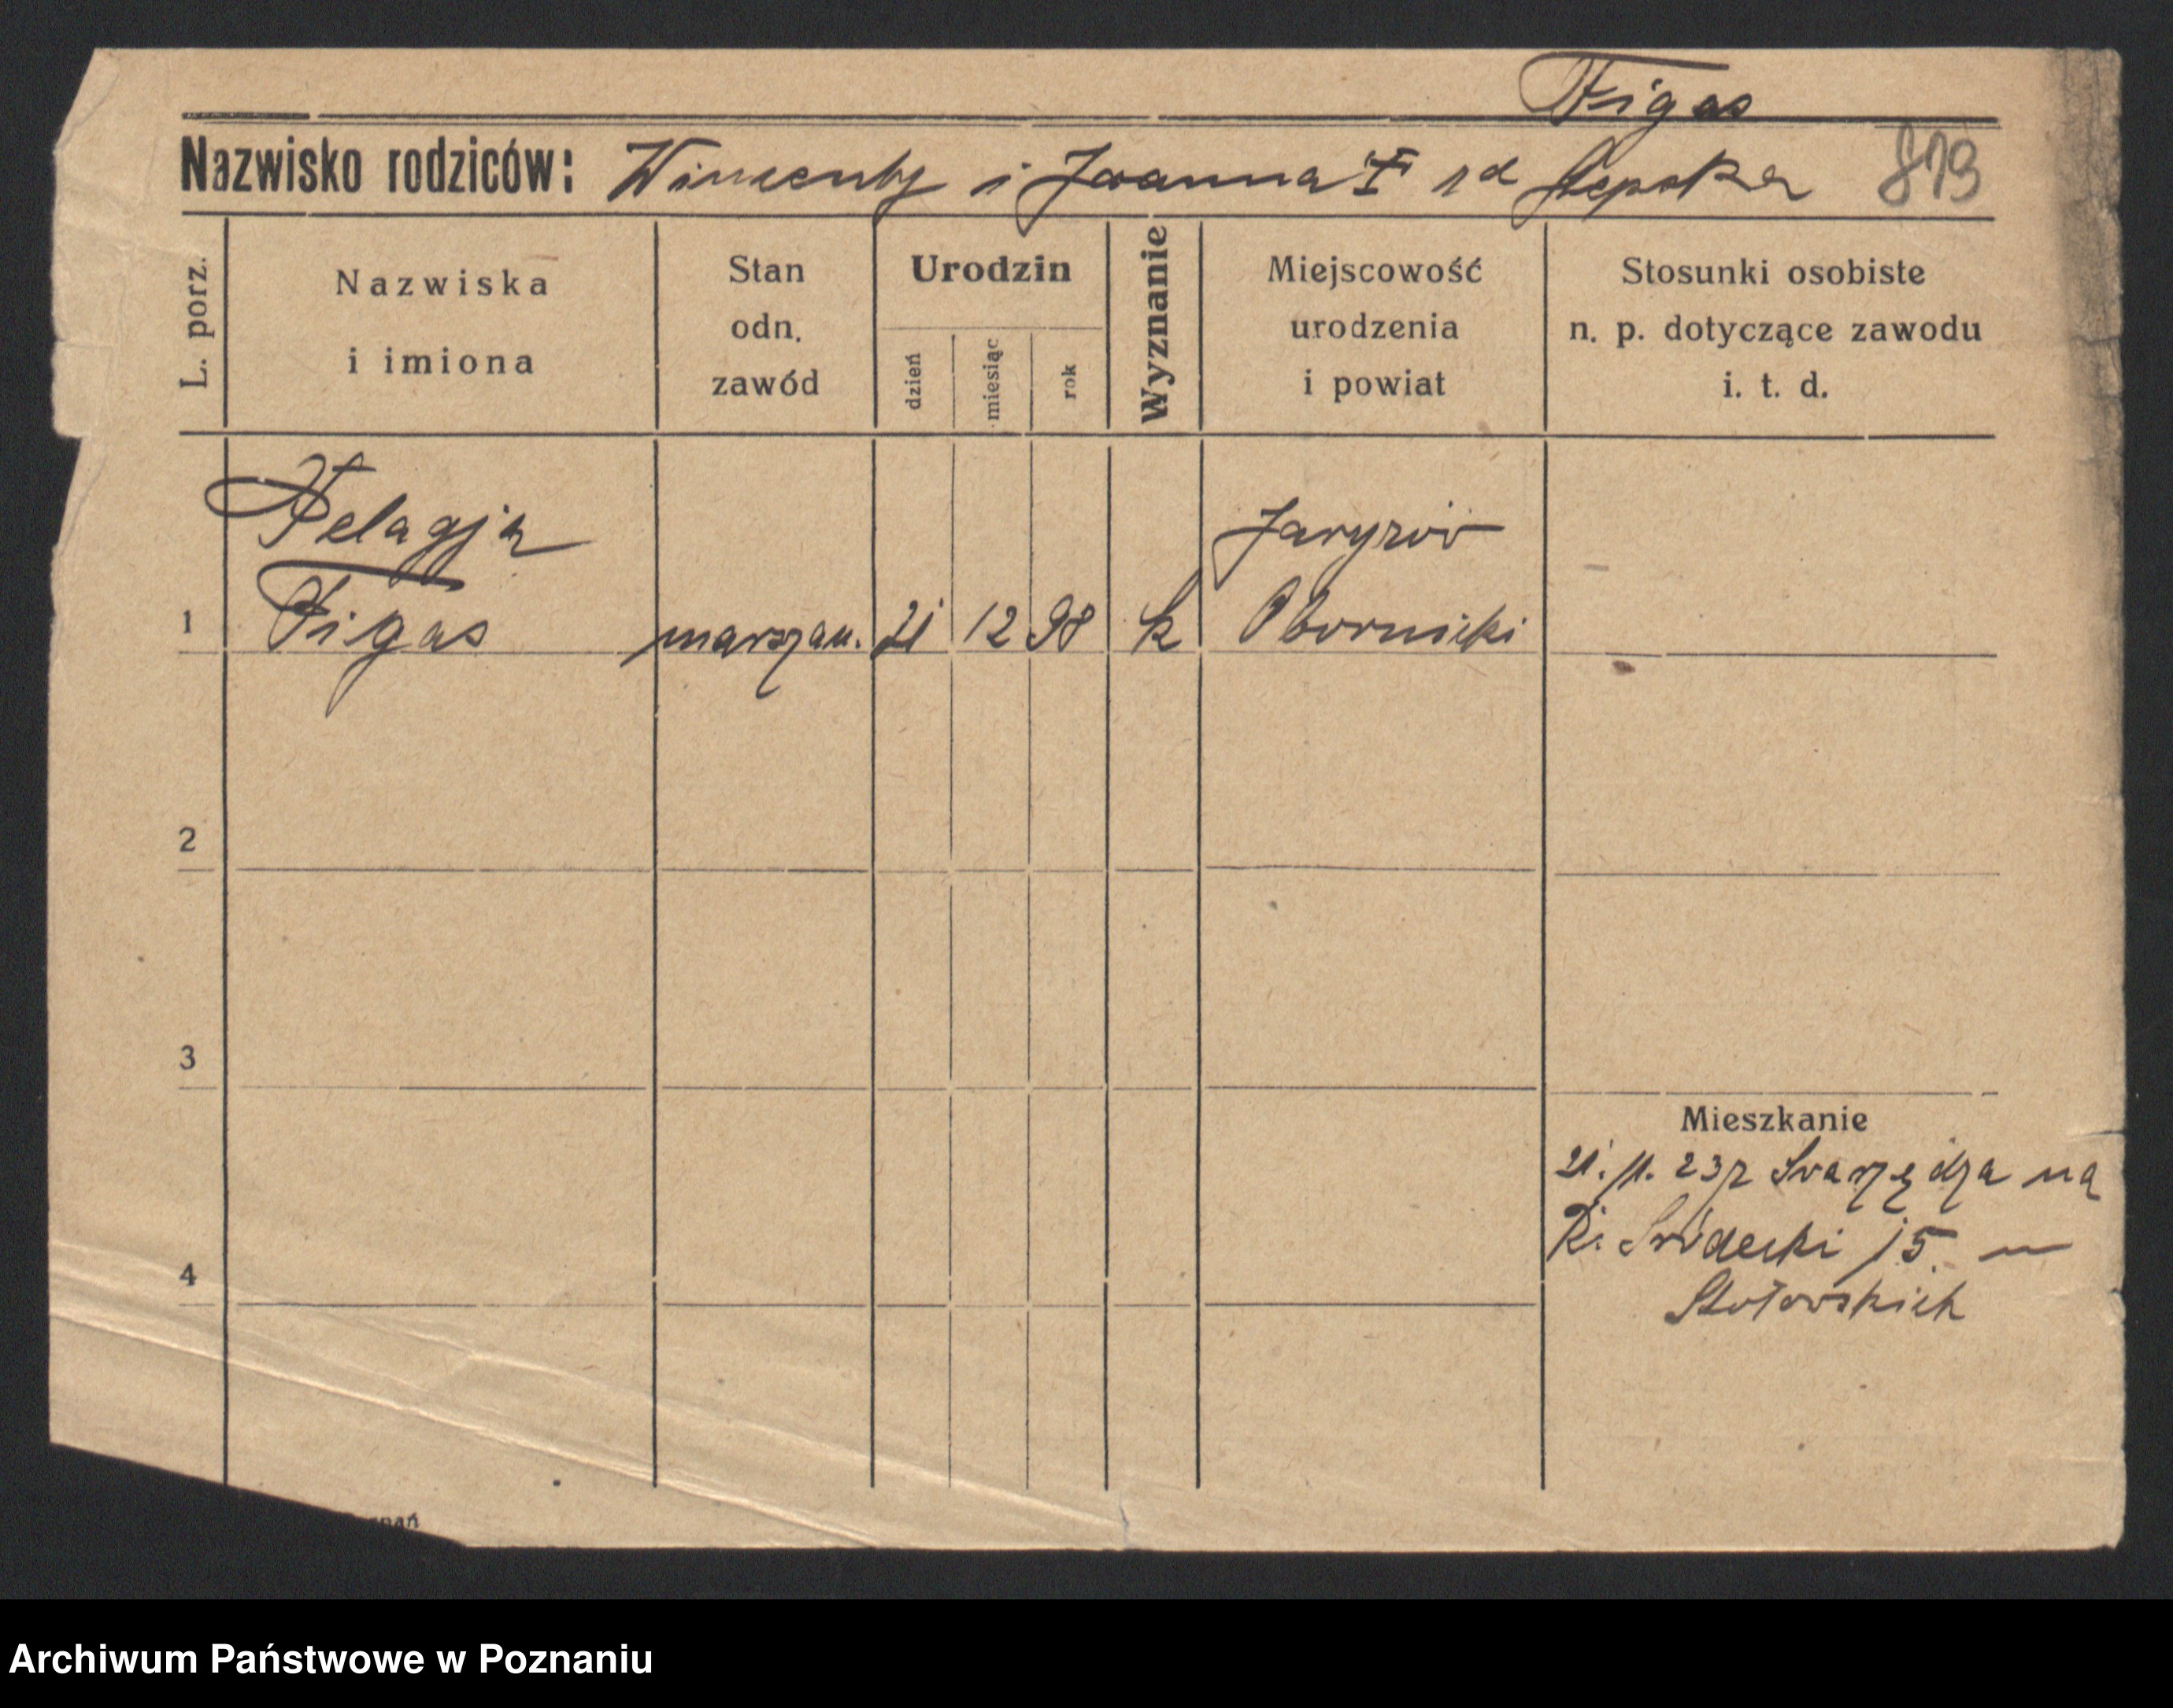 Figas
Nazwisko rodziców: Wincenty i Joanna F rd 819
L. porz.
Nazwiska
i imiona
Stan
odn.
zawód
Urodzin
dzień
miesiąc
rok
Wyznanie
Miejscowość
urodzenia
i powiat
Stosunki osobiste
n. p. dotyczące zawodu
i. t. d.
Pelagja
1 Figas 21 12 98 k Obornicki
2
3
4
Mieszkanie
21. 11. 23 z Swarzędza na
Śródecki 15
nań
Archiwum Państwowe w Poznaniu